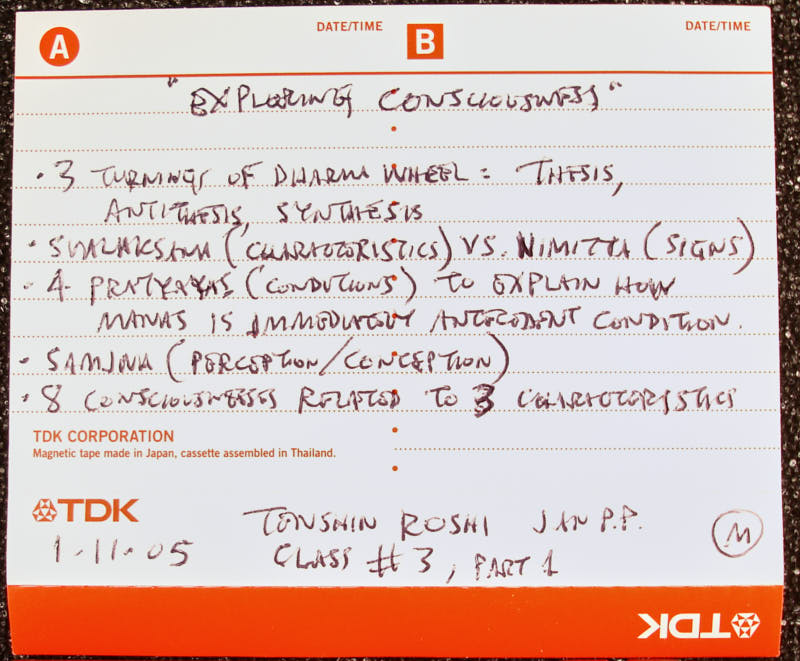 A DATE/TIME B DATE/TIME
"EXPLORING CONSCIOUSNESS"
• 3 TURNINGS OF DHARMA WHEEL: THESIS,
ANTITHESIS, SYNTHESIS
• SVALAKSANA (CHARACTERISTICS) VS. NIMITTA (SIGNS)
• 4 PRATYAYAS (CONDITIONS) TO EXPLAIN HOW
MANAS IS IMMEDIATELY ANTECEDENT CONDITION.
• SAMJNA (PERCEPTION/CONCEPTION)
• 8 CONSCIOUSNESSES RELATED TO 3 CHARACTERISTICS
TDK CORPORATION
Magnetic tape made in Japan, cassette assembled in Thailand.
TDK
TENSHIN ROSHI JAN P.P. M
1.11.05 CLASS #3, PART 1
TDK